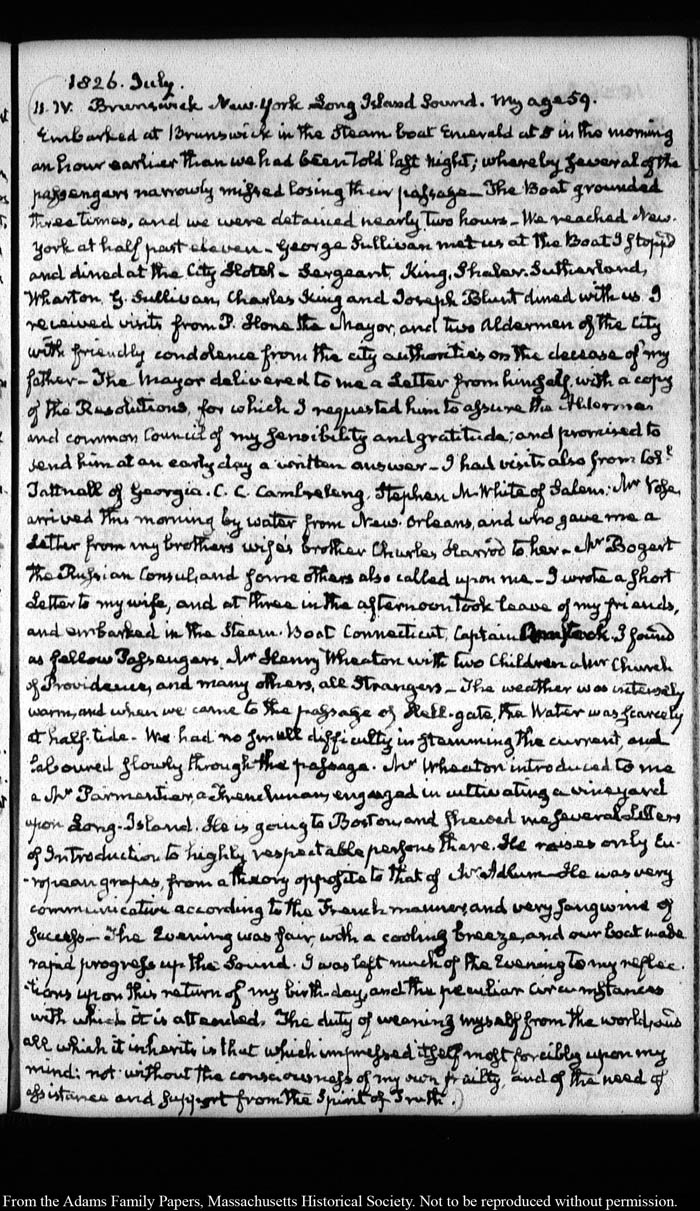 1826. July.
11. IV. Brunswick New-York Long Island Sound. My age 59.
Embarked at Brunswick in the Steam boat Emerald at 5 in the morning
an hour earlier than we had been told last Night; whereby several of the
passengers narrowly missed losing their passage— The Boat grounded
three times, and we were detained nearly two hours— We reached New-
York at half past eleven— George Sullivan met us at the Boat I stopp'd
and dined at the City Hotel— Sergeant, King, Shaler, Sutherland,
Wharton, G. Sullivan, Charles King and Joseph Blunt dined with us. I
received visits from P. Hone the Mayor, and two Aldermen of the City
with friendly condolence from the city authorities on the decease of my
father— The Mayor delivered to me a Letter from himself, with a copy
of the Resolutions, for which I requested him to assure the Aldermen
and common Council of my sensibility and gratitude; and promised to
send him at an early day a written answer— I had visits also from Coll.
Tattnall of Georgia. C. C. Cambreleng. Stephen White of Salem; Mr Vose,
arrived this morning by water from New-Orleans, and who gave me a
Letter from my brothers wife's brother Charles Harrod to her— Mr Bogert
the Russian Consul, and some others also called upon me— I wrote a short
Letter to my wife, and at three in the afternoon took leave of my friends,
and embarked in the Steam-Boat Connecticut, Captain I found
as fellow Passengers, Mr Henry Wheaton with two Children a Mr Church
of Providence, and many others, all Strangers— The weather was intensely
warm, and when we came to the passage of Hell-gate, the Water was scarcely
at half-tide— We had no small difficulty in stemming the current, and
laboured slowly through the passage. Mr Wheaton introduced to me
a Mr Parmentier, a Frenchman, engaged in cultivating a vineyard
upon Long-Island. He is going to Boston, and shewed me several Letters
of Introduction to highly respectable persons there. He raises only Eu-
-ropean grapes, from a theory opposite to that of Mr Adlum— He was very
communicative according to the French manner, and very sanguine of
success— The Evening was fair, with a cooling breeze, and our boat made
rapid progress up the Sound. I was left much of the Evening to my reflec-
-tions upon this return of my birth-day, and the peculiar circumstances
with which it is attended. The duty of weaning myself from the world, and
all which it inherits is that which impressed itself most forcibly upon my
mind: not without the consciousness of my own frailty, and of the need of
assistance and support from the Spirit of Truth.)
From the Adams Family Papers, Massachusetts Historical Society. Not to be reproduced without permission.